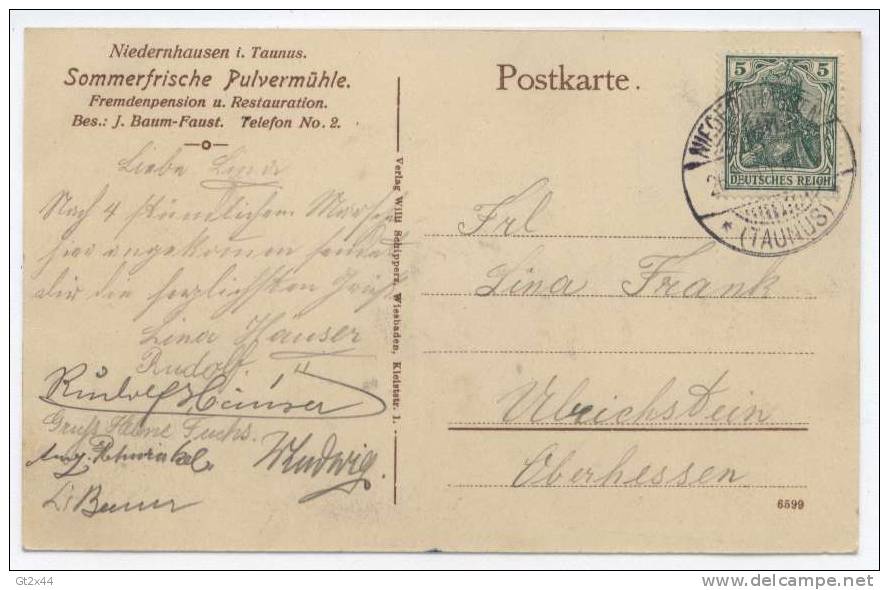 Niedernhausen i. Taunus.
Sommerfrische Pulvermühle.
Fremdenpension u. Restauration.
Bes.: J. Baum-Faust. Telefon No. 2.
Liebe Lina
Nach 4 stündlichem Marsch
hier angekommen sendet
dir die herzlichsten Grüße
Lina Häuser
Rudolf "
Rudolf Häuser
Gruß Fuchs.
Ludwig.
Verlag Willi Schippers, Wiesbaden, Kleiststr. 1.
Postkarte.
5 5
DEUTSCHES REICH
(TAUNUS)
Frl
Lina Frank
Ulrichstein
Oberhessen
6599
Gt2x44
delcampe.net